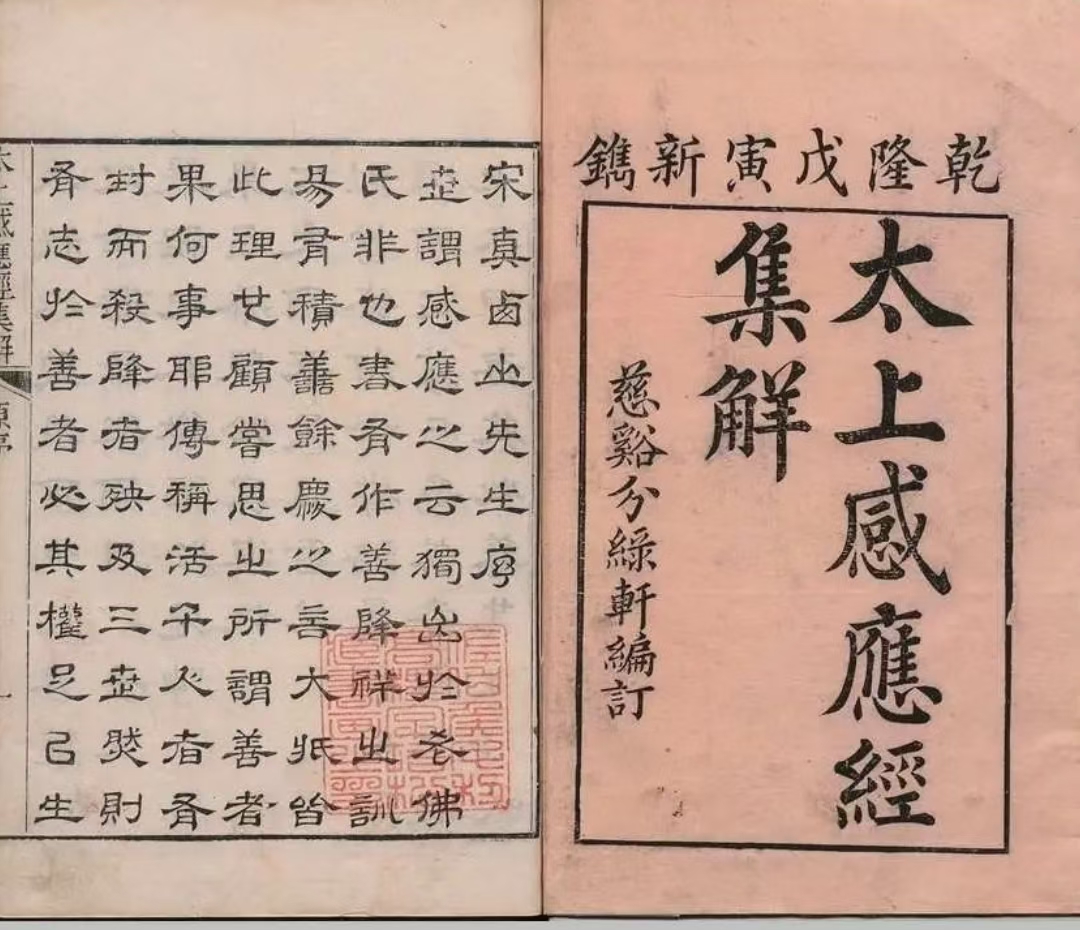 乾隆戊寅新鐫
太上感應經
集解
慈谿分綠軒編訂
宋真西山先生序
世謂感應之云獨出於老佛
氏非也書有作善降祥之訓
易有積善餘慶之言大抵皆
此理也顧嘗思之所謂善者
果何事耶傳稱活千人者有
封而殺降者殃及三世然則
有志於善者必其權足以生
太上感應經集解
原序
一